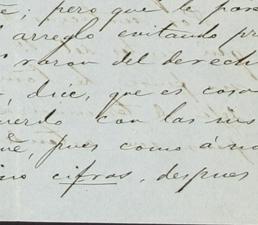 ; pero que le par
arreglo evitando pr
razon del derech
, dice, que es cosa
uerdo con las ins
, pues como á no
cifras, despues